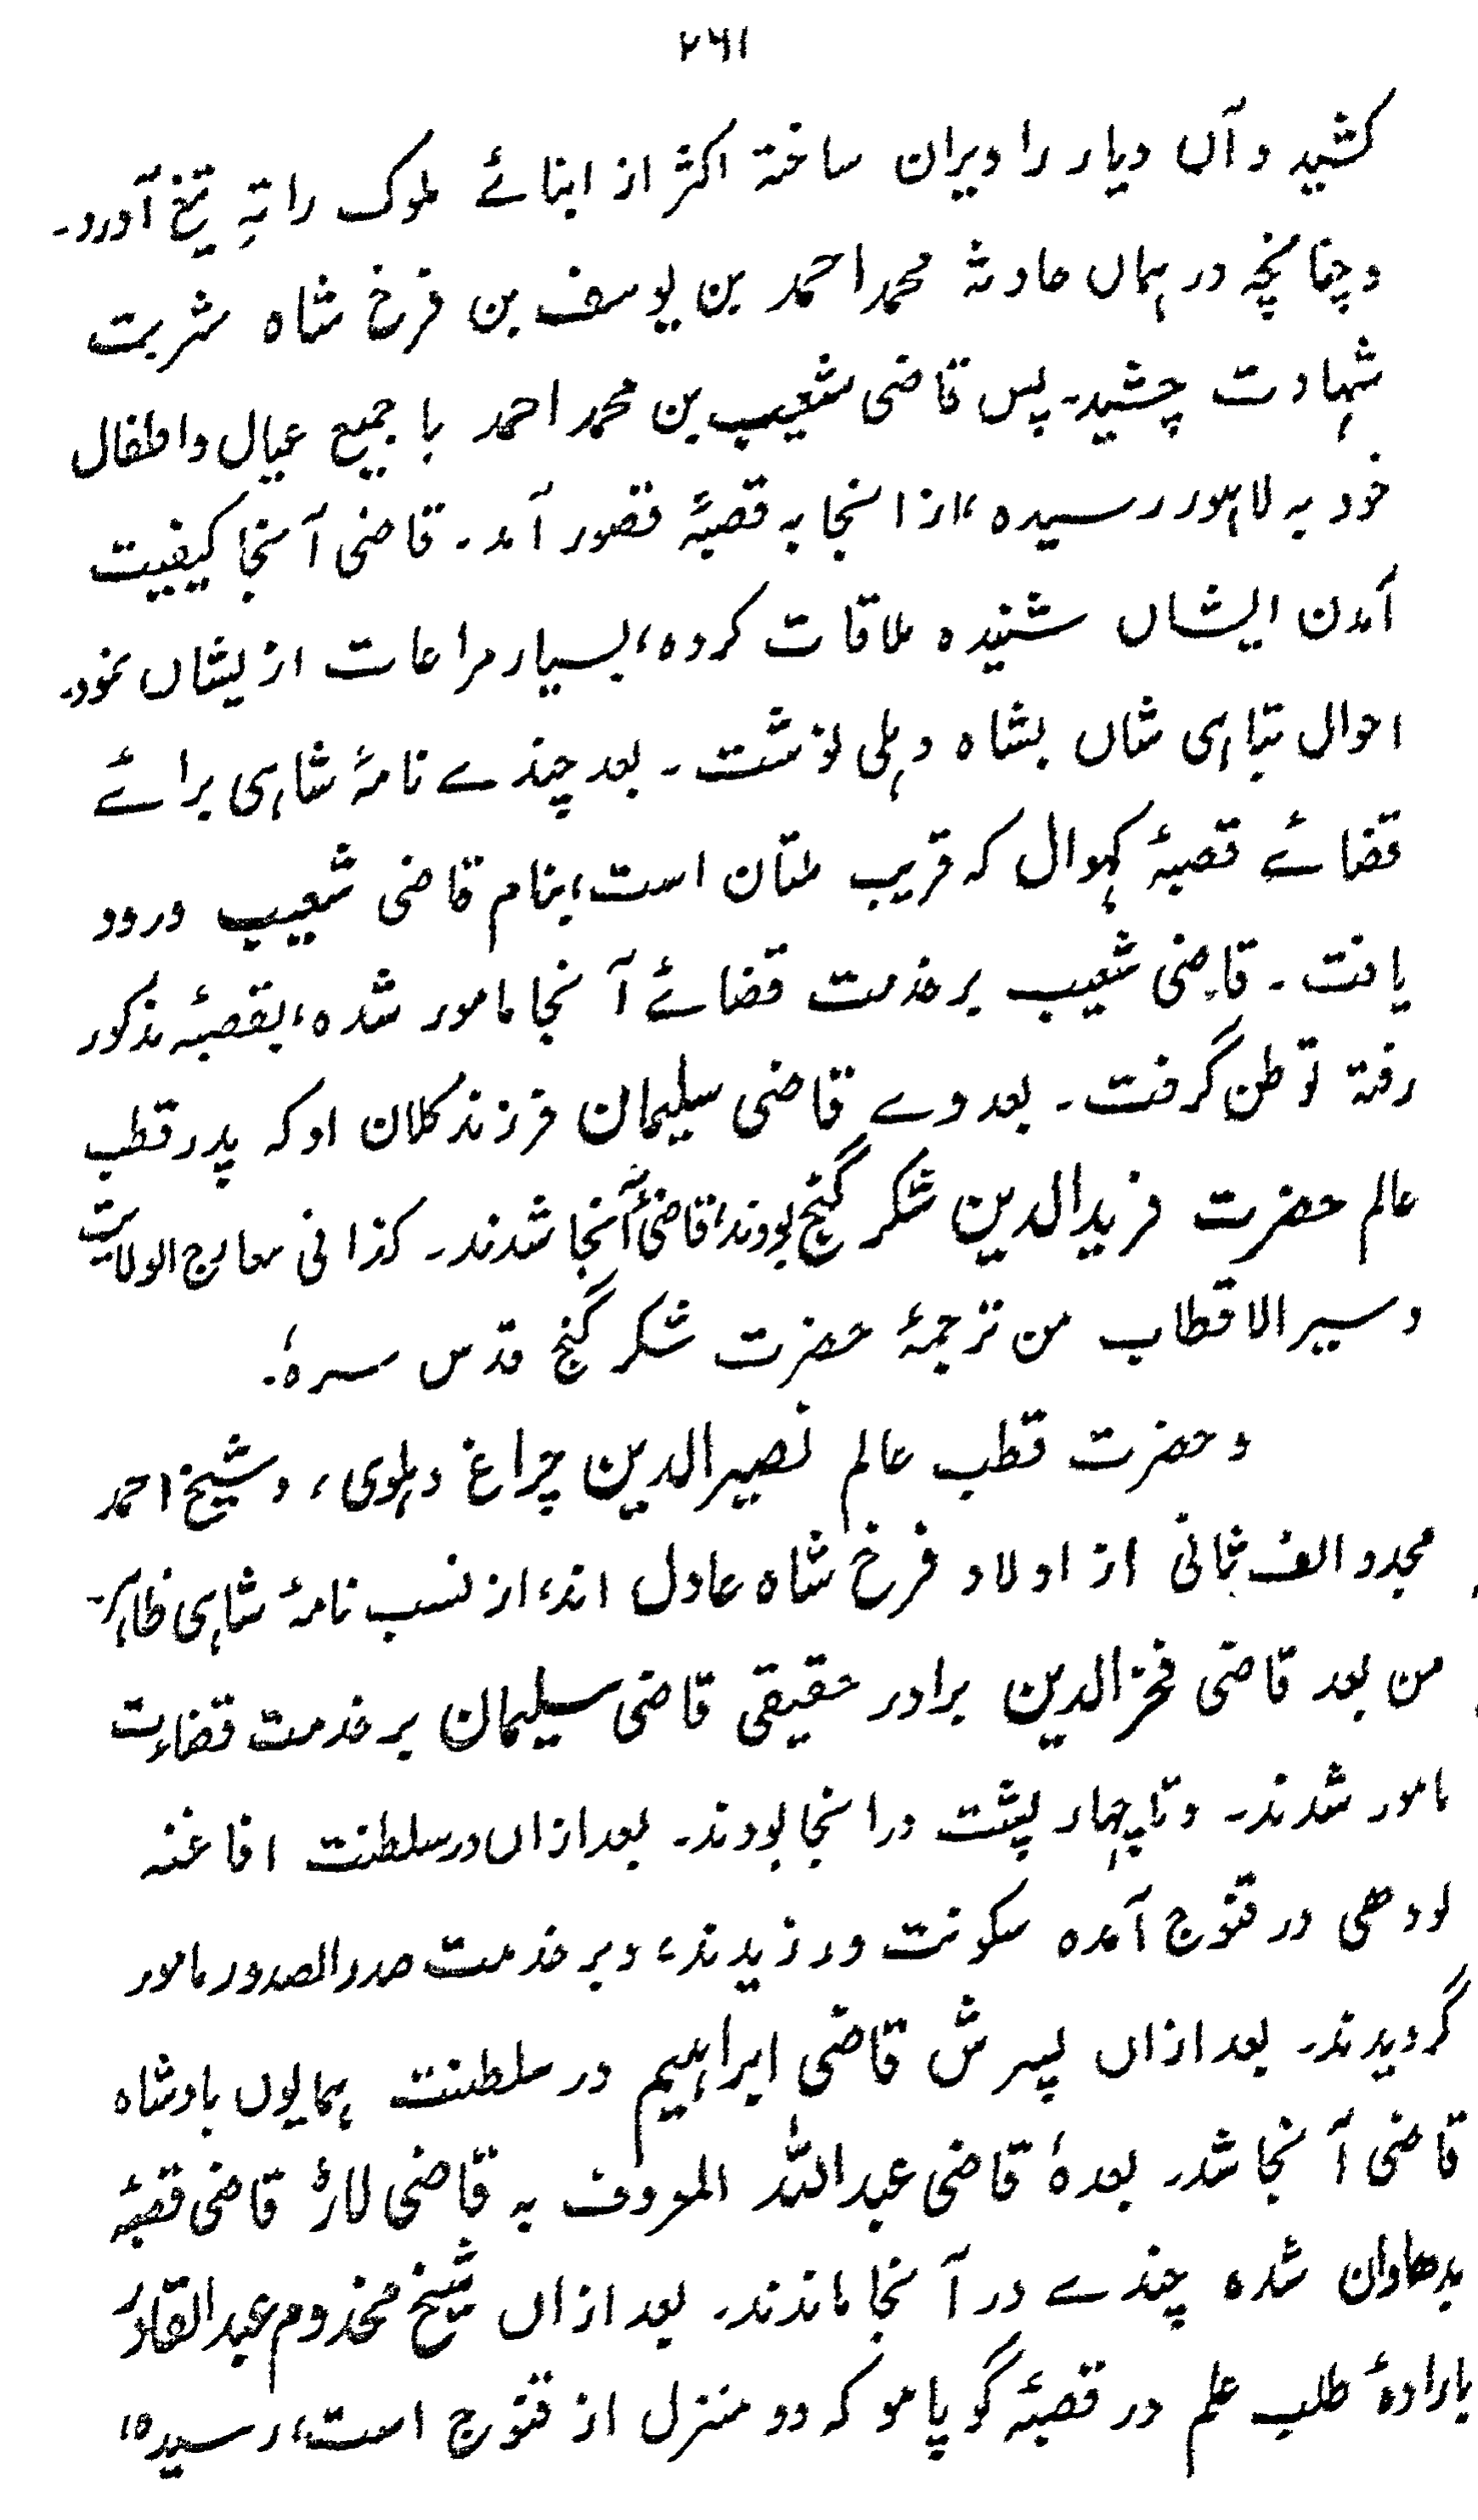 ۲۶۱
کشید و آں دیار را ویران ساختہ اکثر از ابنائے ملوک را تہِ تیغ آورد۔
و چنانچہ در ہماں حادثہ محمد احمد بن یوسف بن فرخ شاہ شربت
شہادت چشید۔ پس قاضی شعیب بن محمد احمد با جمیع عیال و اطفال
خود بہ لاہور رسیدہ، از انجا بہ قصبۂ قصور آمد۔ قاضی آنجا کیفیت
آمدن ایشاں شنیدہ ملاقات کردہ، بسیار مراعات از یشاں نمود۔
احوال تباہی شاں بشاہ دہلی نوشت۔ بعد چندے نامۂ شاہی برائے
قضائے قصبۂ کہوال کہ قریب ملتان است، بنام قاضی شعیب ورود
یافت۔ قاضی شعیب بر خدمت قضائے آنجا مامور شدہ، بقصبۂ مذکور
رفتہ توطن گرفت۔ بعد وے قاضی سلیمان فرزند کلان او کہ پدر قطب
عالم حضرت فرید الدین شکر گنج بودند، قاضیٔ آنجا شدند۔ کذا فی معارج الولایت
و سیر الاقطاب من ترجمۂ حضرت شکر گنج قدس سرہٗ۔
و حضرت قطب عالم نصیر الدین چراغ دہلوی، و شیخ احمد
مجدد الف ثانی از اولاد فرخ شاہ عادل اند، از نسب نامۂ شاہی ظاہر۔
من بعد قاضی فخر الدین برادر حقیقی قاضی سلیمان بر خدمت قضاءت
مامور شدند۔ و تا چہار پشت در انجا بودند۔ بعد ازاں در سلطنت افاغنہ
لودھی در قنوج آمدہ سکونت ورزیدند، و بر خدمت صدر الصدور مامور
گردیدند۔ بعد ازاں پسرش قاضی ابراہیم در سلطنت ہمایوں بادشاہ
قاضی آنجا شد۔ بعدہٗ قاضی عبد اللہ المعروف بہ قاضی لارۂ قاضی قصبۂ
بدھاوان شدہ چندے در آنجا ماندند۔ بعد ازاں شیخ مخدوم عبد القادر
بارادۂ طلب علم در قصبۂ گوپامو کہ دو منزل از قنوج است، رسیدہ،